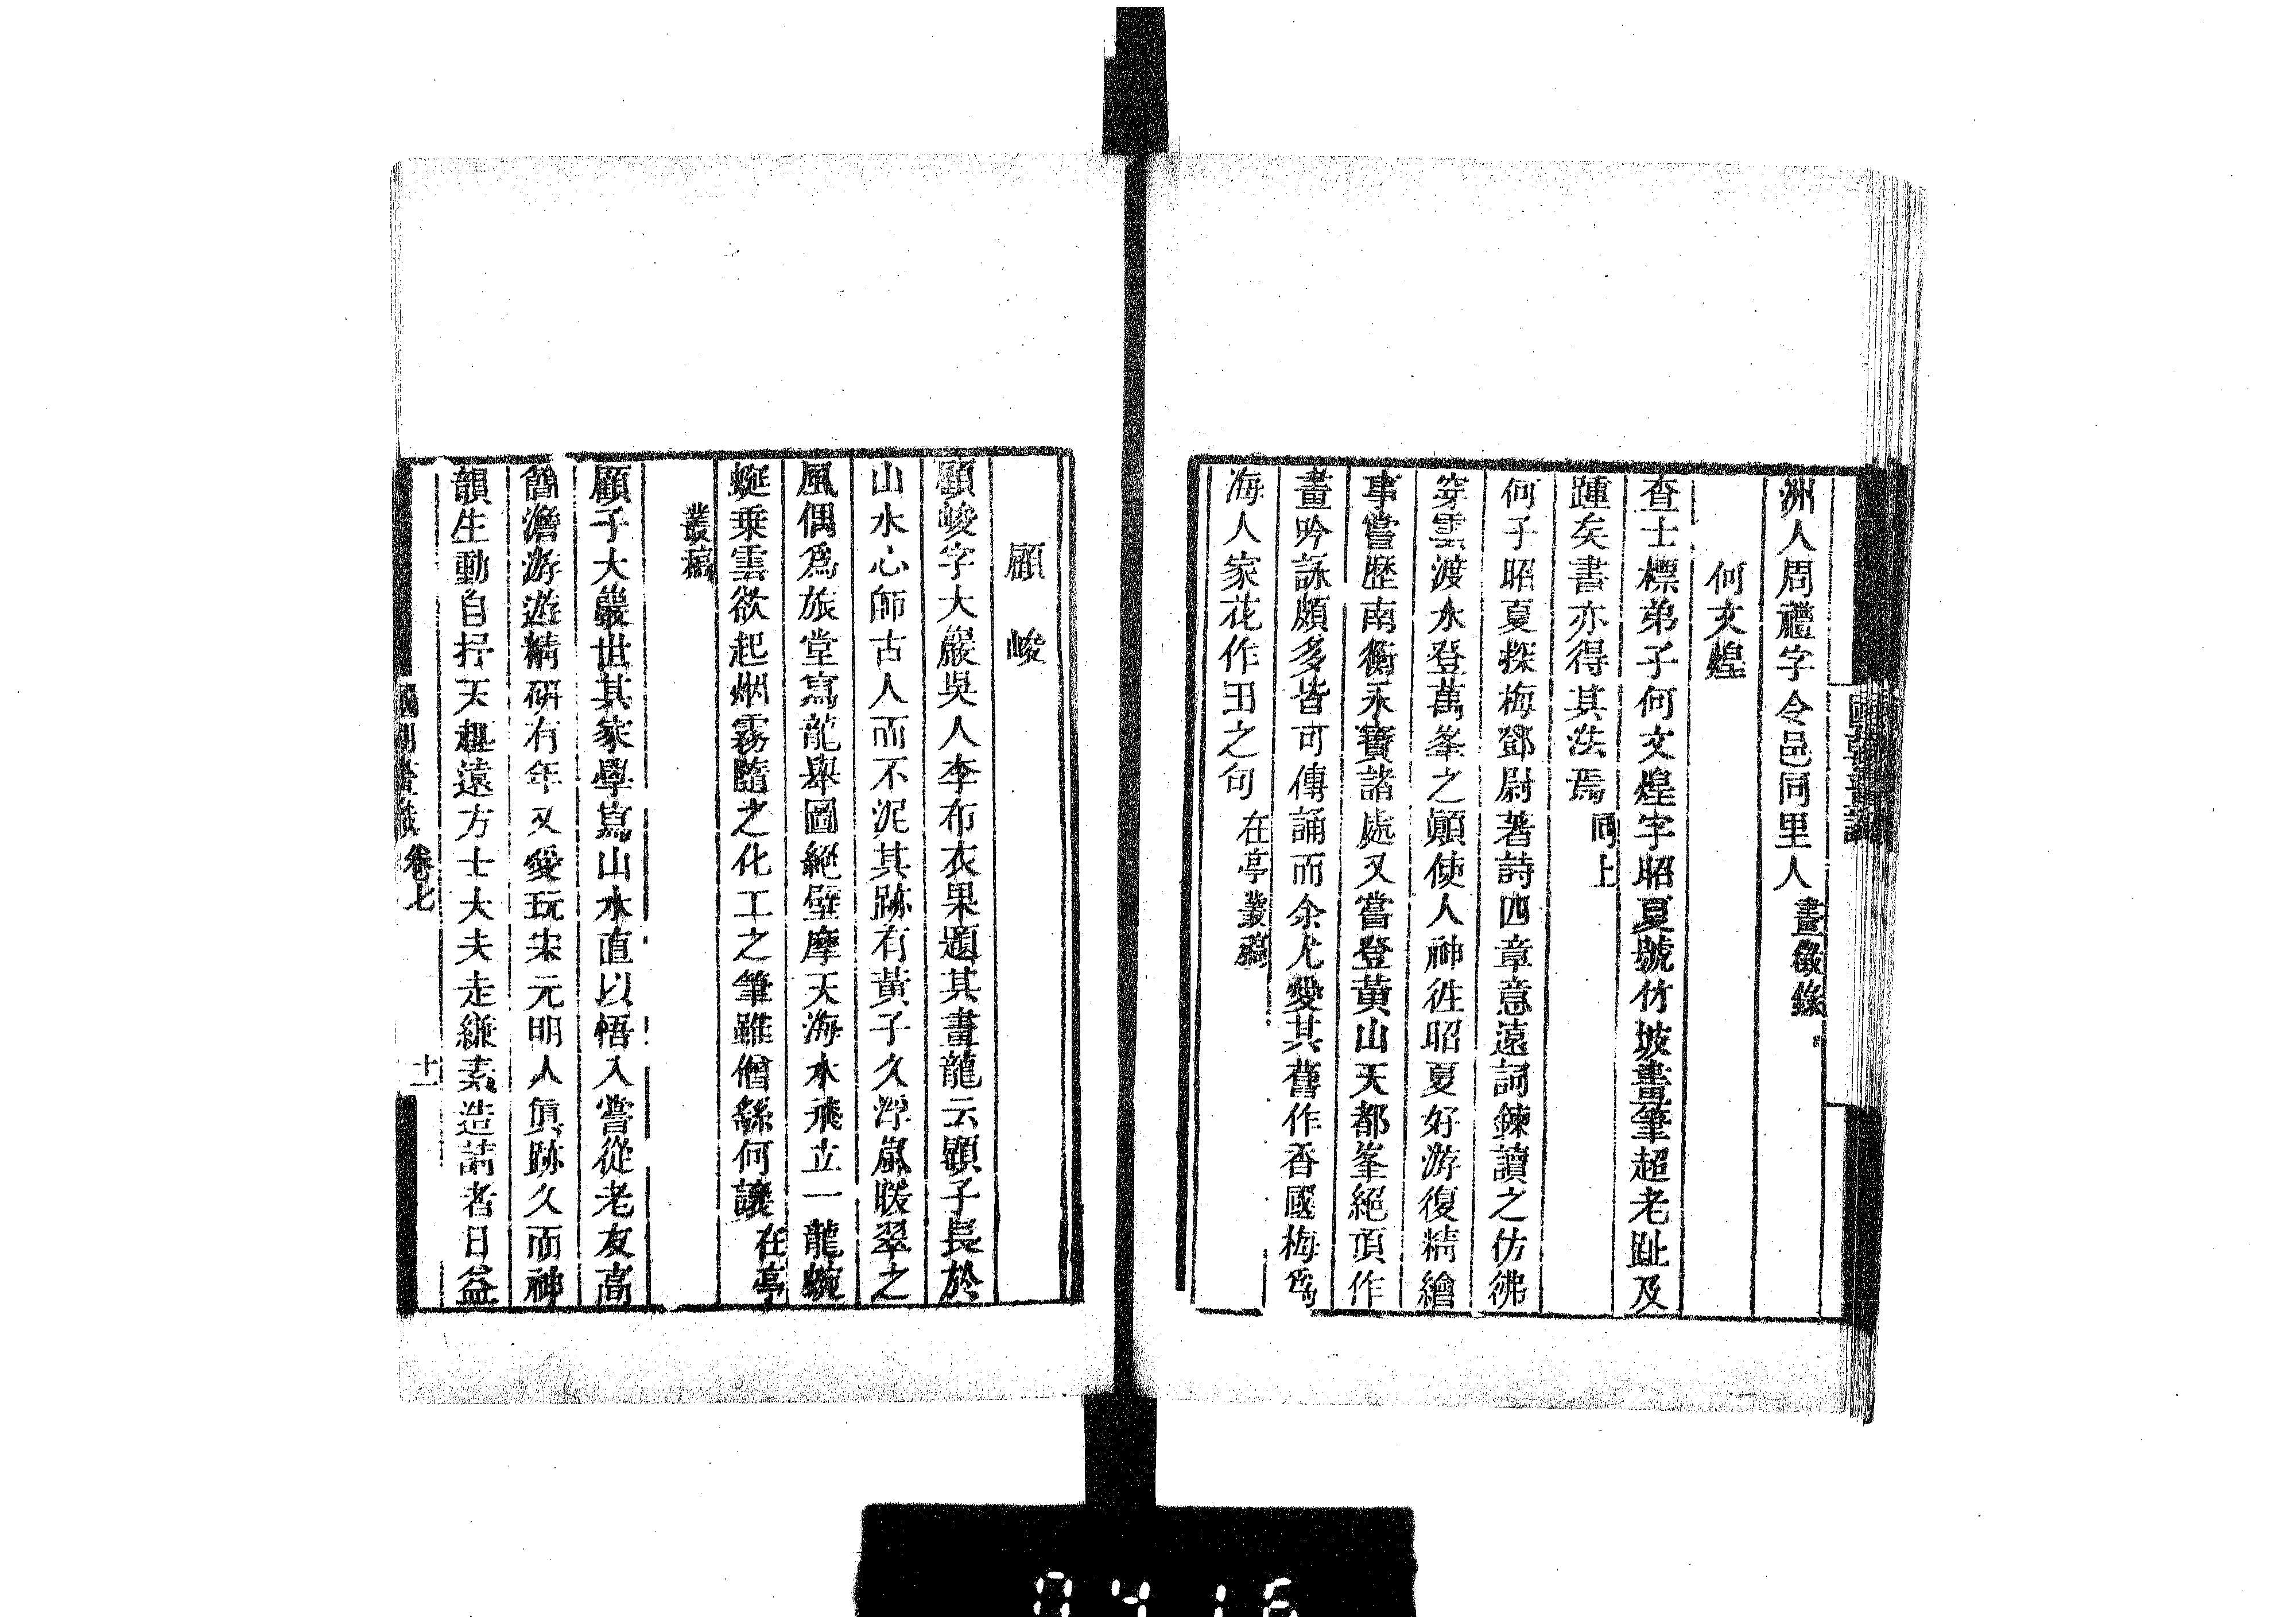 洲人周禮字令邑同里人畫徵錄
何文煌
查士標弟子何文煌字昭夏號竹坡畫筆超老趾及
踵矣書亦得其法焉同上
何子昭夏探梅鄧尉著詩四章意遠詞鍊讀之仿彿
穿雲渡水登萬峯之顚使人神徃昭夏好游復精繪
事嘗歷南衡永寶諸處又嘗登黃山天都峯絕頂作
畫吟詠頗多皆可傳誦而余尤愛其舊作香國梅爲
海人家花作田之句在亭叢稿
顧峻
顧峻字大巖吳人李布衣果題其畫龍云顧子長於
山水心師古人而不泥其跡有黃子久浮嵐暖翠之
風偶爲旅堂寫龍舉圖絕壁摩天海水飛立一龍蜿
蜒乗雲欲起烟霧隨之化工之筆雖僧繇何讓在亭
叢稿
顧子大巖世其家學寫山水直以悟入嘗從老友高
簡澹游遊精研有年又愛玩宋元明人眞跡久而神
韻生動自抒天趣遠方士大夫走縑素造請者日益
國朝畫識 卷七 十一
0416